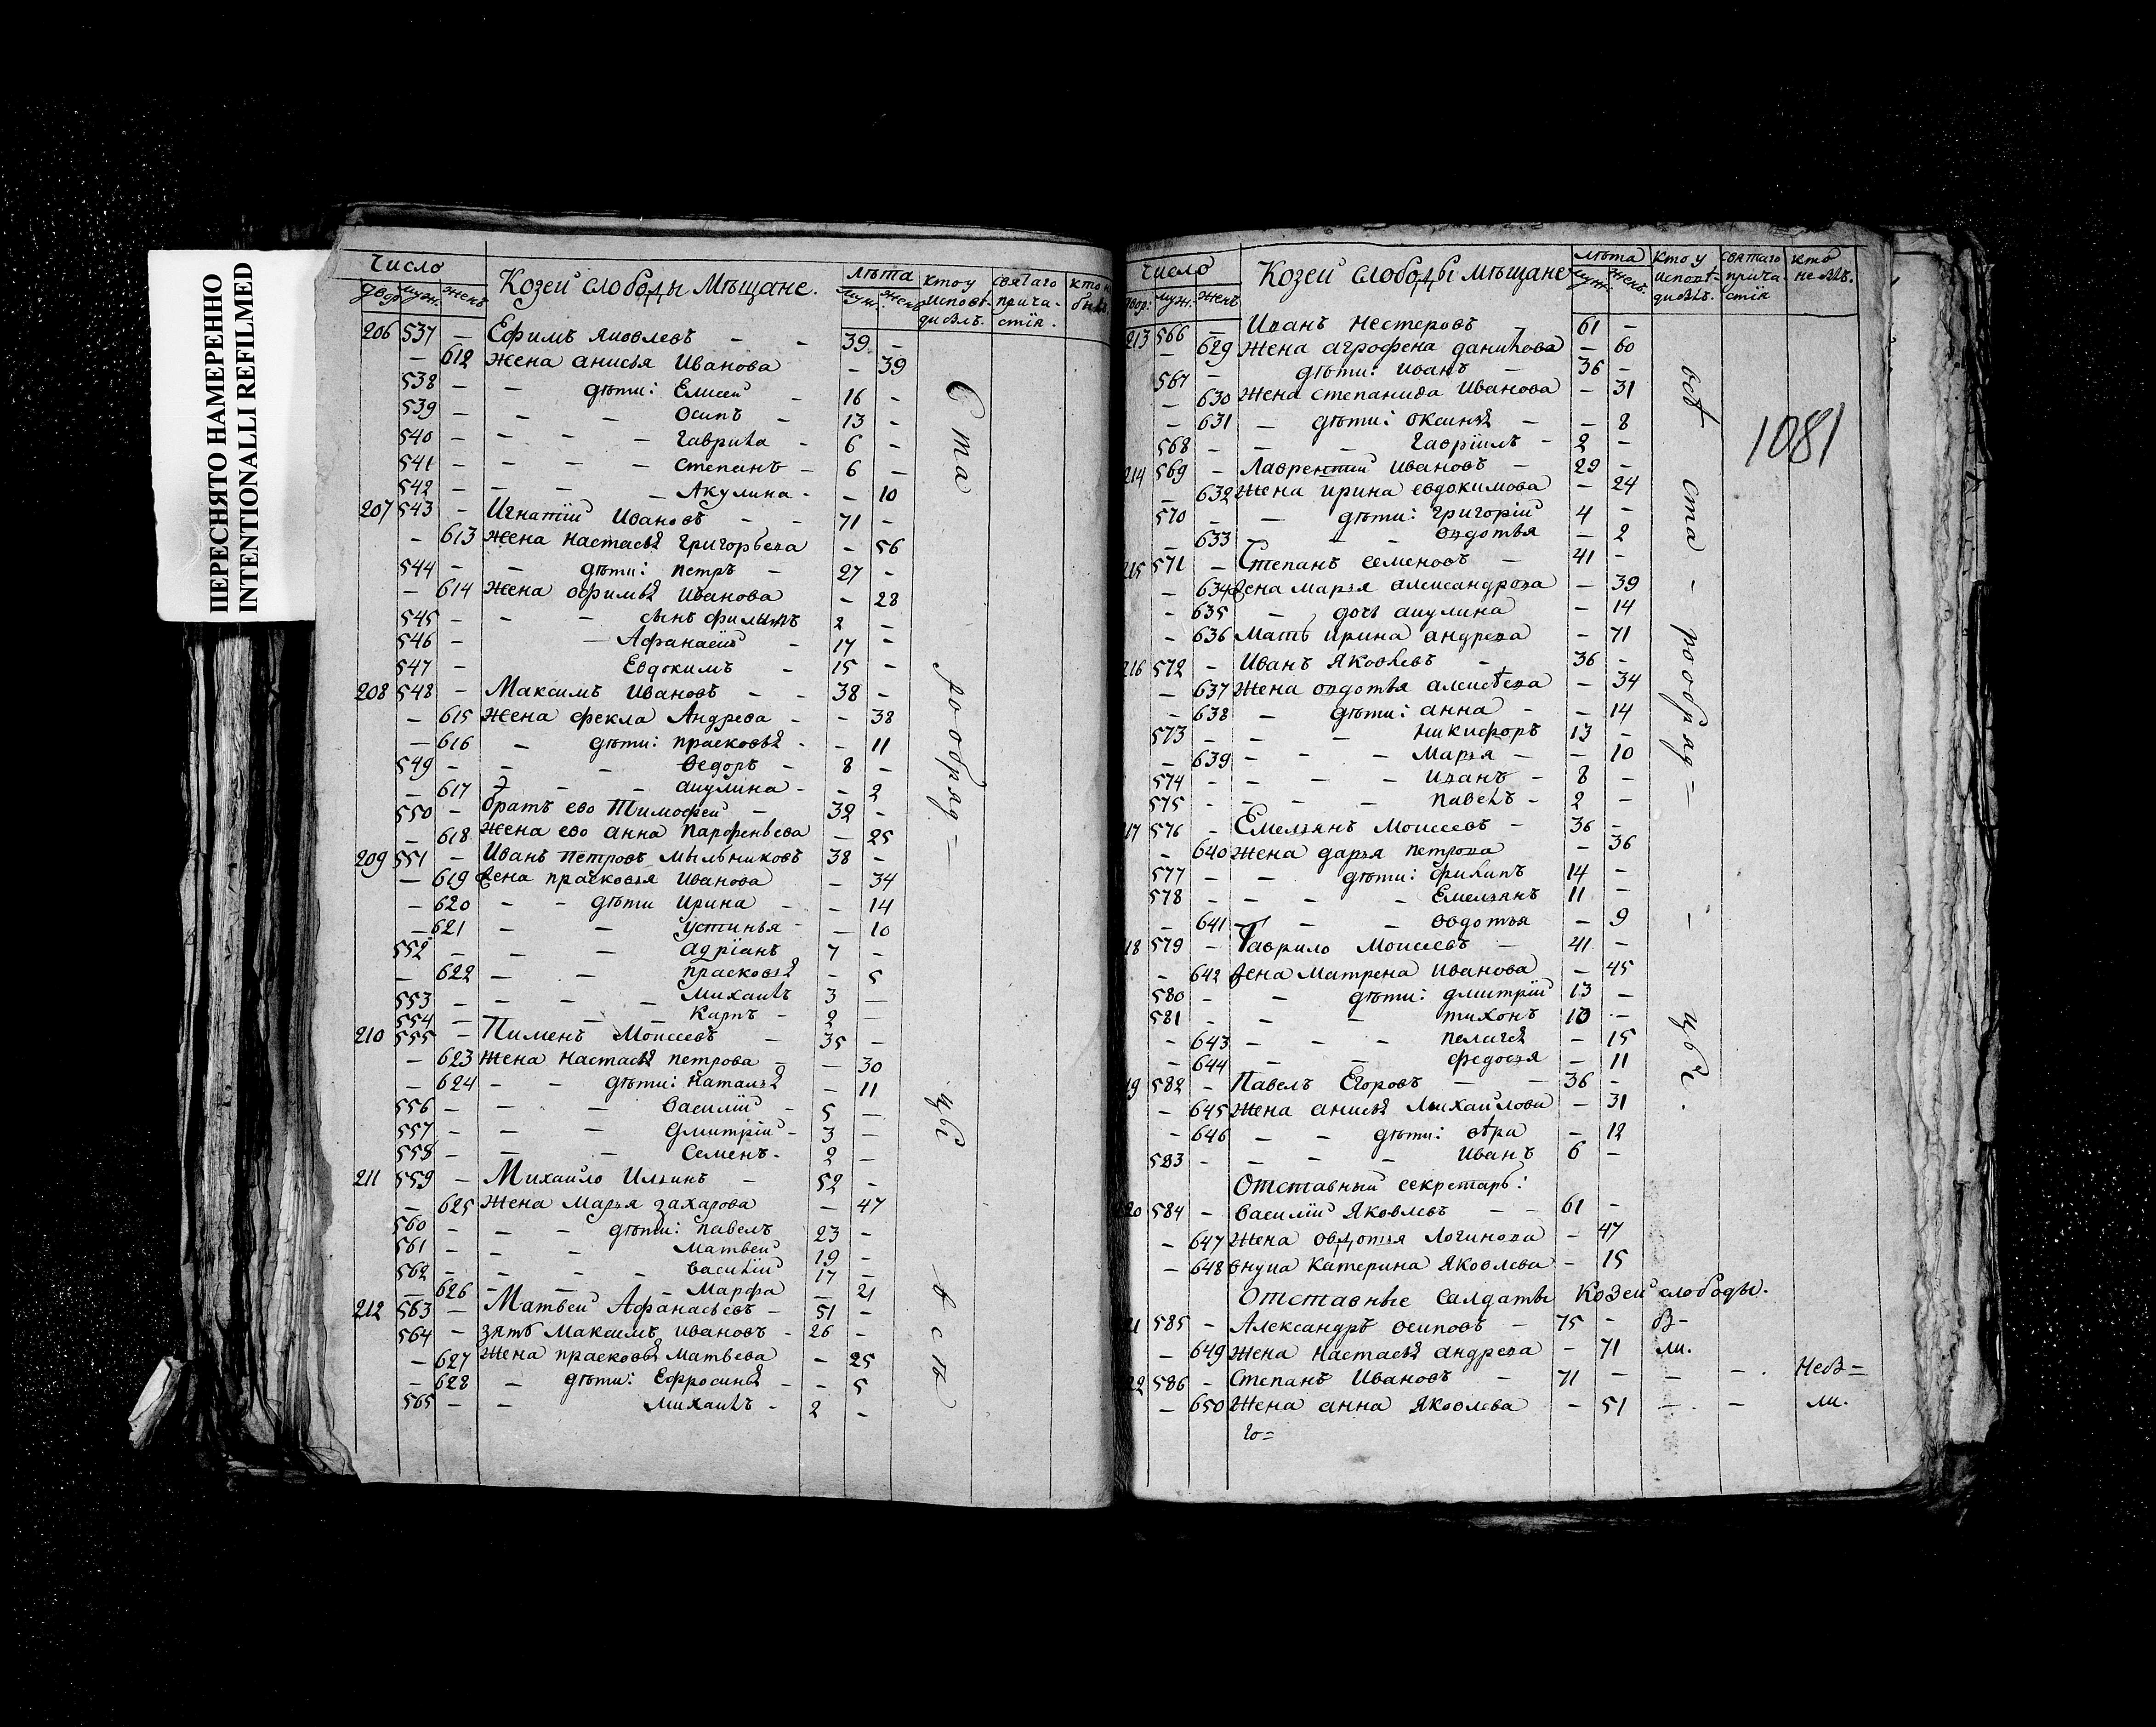 ПЕРЕСНЯТО НАМЕРЕННО
INTENTIONALLI REFILMED
Число Козей слободы Мѣщане. лѣта кто у святаго
двор. муж. жен. муж. женъ исповѣ- прича-
дивлъ. стїя.
206 537 – Ефимъ Яковлевъ – – 39 –
– 612 жена анисья Иванова – 39
538 – – дѣти: Елисей – 16 –
539 – – – Осипъ – 13 –
540 – – – – Гаврила – 6 –
541 – – – – степанъ – 6 –
542 – – – – Акулина – – 10
207 543 – Игнатїй Ивановъ – – 71 –
– 613 жена настасья григорьева – 56
544 – – дѣти: петръ – 27 –
– 614 жена офимья Иванова – 28
545 – – – сынъ филипъ 2 –
546 – – Афанасїй – 17 –
547 – Евдокимъ – 15 –
208 548 – Максимъ Ивановъ – – 38 –
– 615 жена фекла Андрева – – 38
– 616 – дѣти: прасковья – – 11
549 – – – Ѳедоръ – 8 –
– 617 – – – акулина – – 2
550 – братъ ево Тимофей – 32 –
– 618 жена ево анна Парфеньева – 25
209 551 – Иванъ петровъ мыльниковъ 38 –
– 619 жена прасковья Иванова – 34
– 620 – – дѣти Ирина – – 14
– 621 – – устинья – – 10
552 – – – адрїанъ 7 –
– 622 – – прасковья – 5
553 – – – – михаилъ 3 –
554 – – – – Карпъ – 2 –
210 555 – Пименъ Моисеевъ – 35 –
– 623 жена настасья петрова – – 30
– 624 – – дѣти: наталья – 11
556 – – – василїй – 5 –
557 – – – дмитрїй – 3 –
558 – – – семенъ – 2 –
211 559 – Михайло Ильинъ – 52 –
– 625 жена марья захарова – 47
560 – – – дѣти: павелъ 23 –
561 – – – матвей 19 –
562 – – – – василїй 17 –
– 626 – – – – марфа – 21
212 563 – Матвей Афанасьевъ – 51 –
564 – зять максимъ ивановъ – 26 –
– 627 жена прасковья матвева – 25
– 628 – дѣти: Ефросинья – – 5
565 – – михаилъ – 2 –
Число Козей слободы мѣщане лѣта кто у святаго кто
двор: муж. женъ муж. женъ. исповѣ- прича- не былъ.
дивлъ. стїя
1081
213 566 – Иванъ Нестеровъ – 61 –
– 629 жена агрофена данилова – 60
567 – дѣти: иванъ – 36 –
– 630 жена степанида Иванова – 31
– 631 – дѣти: оксинья – – 8
568 – – – гаврїилъ – 2 –
214 569 – Лаврентий ивановъ – 29 –
– 632 жена ирина евдокимова – 24
570 – – дѣти: григорїй 4 –
– 633 – – – овдотья – 2
215 571 – Степанъ семеновъ – 41 –
– 634 жена марья александрова – 39
– 635 – дочь акулина – 14
– 636 Мать ирина андрева – 71
216 572 – Иванъ Яковлевъ – 36 –
– 637 жена овдотья алексѣева – 34
– 638 – дѣти: анна – – 14
573 – – – никифоръ 13 –
– 639 – – – марья – – 10
574 – – – – иванъ – 8 –
575 – – – – павелъ – 2 –
17 576 – Емельянъ Моисеевъ – 36 –
– 640 жена дарья петрова – 36
577 – – дѣти: филипъ 14 –
578 – – – – Емельянъ 11 –
– 641 – – – овдотья – 9
18 579 – Гаврило Моисеевъ – 41 –
– 642 жена матрена иванова – 45
580 – – дѣти: дмитрїй 13 –
581 – – – тихонъ 10 –
– 643 – – – пелагея – 15
– 644 – – – федосья – 11
19 582 – Павелъ Егоровъ – – 36 –
– 645 жена анисья михайлова – 31
– 646 – – дѣти: вѣра – 12
583 – – – – иванъ 6 –
Отставный секретарь:
20 584 – василїй Яковлевъ – – 61 –
– 647 жена овдотья логинова – 47
– 648 внука катерина Яковлева – 15
Отставные салдаты Козей слободы.
21 585 – Александръ осиповъ – 75 – бы-
– 649 жена настасья андрева – 71 ли.
22 586 – Степанъ Ивановъ – 71 – – – Небы=
– 650 жена анна Яковлева – 51 – – ли.